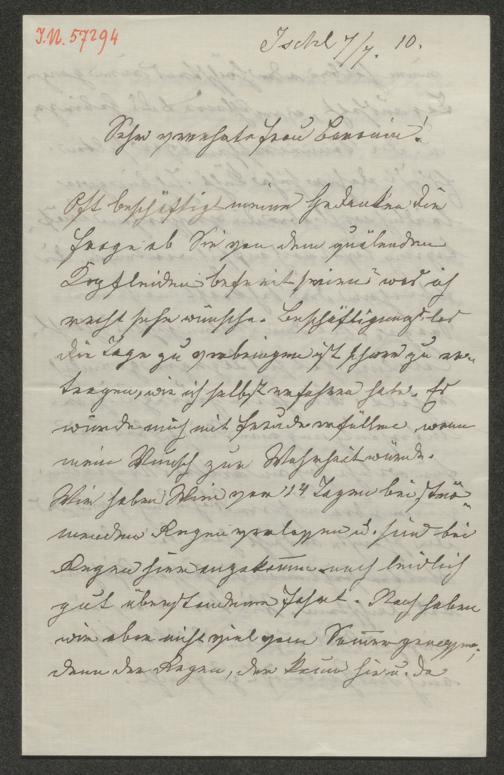 I.N. 57294
Ischl 7/7. 10.
Sehr verehrte Frau Baronin!
Oft beschäftigt meine Gedanken die
Frage ob Sie von dem quälenden
Kopfleiden befreit seien was ich
recht sehr wünsche. Beschäftigungslos
die Tage zu verbringen ist schwer zu er-
tragen, wie ich selbst erfahren habe. Es
würde mich mit Freude erfüllen, wenn
mein Wunsch zur Wahrheit würde.
Wir haben Wien vor 14 Tagen bei strö-
menden Regen verlassen u. sind bei
Regen hier angekommen nach leidlich
gut überstandener Fahrt. Noch haben
wir aber nicht viel vom Sommer genossen,
denn der Regen, der kaum hie u. da